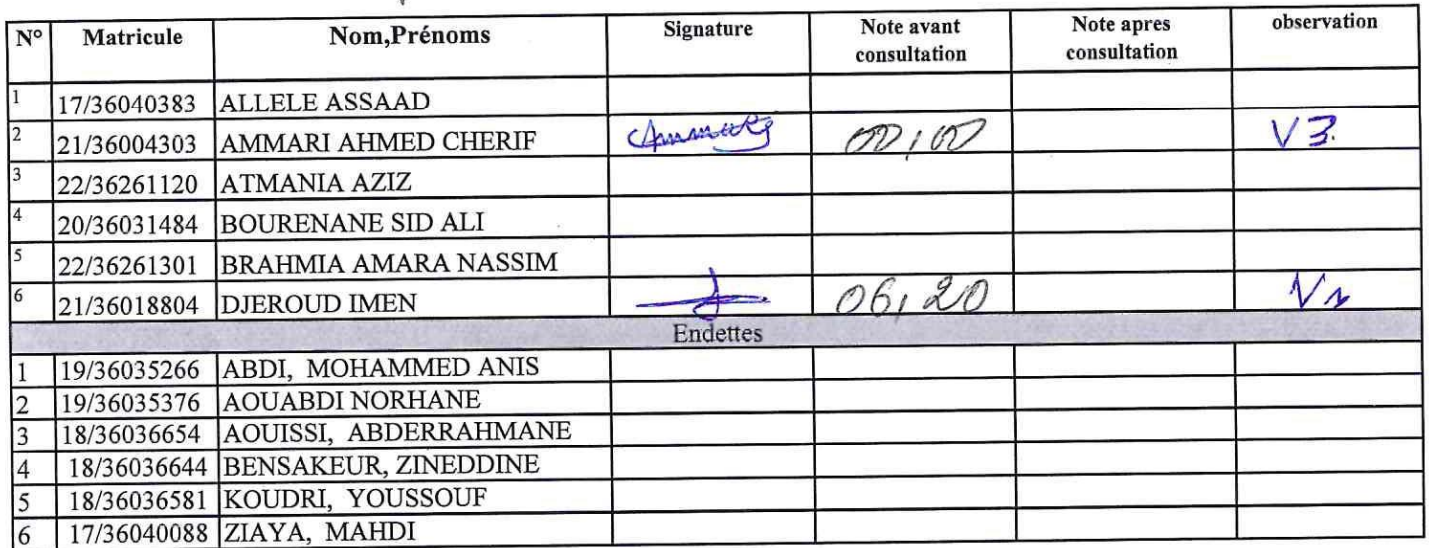 N° Matricule Nom,Prénoms Signature Note avant consultation Note apres consultation observation
1 17/36040383 ALLELE ASSAAD
2 21/36004303 AMMARI AHMED CHERIF 00,00 V3.
3 22/36261120 ATMANIA AZIZ
4 20/36031484 BOURENANE SID ALI
5 22/36261301 BRAHMIA AMARA NASSIM
6 21/36018804 DJEROUD IMEN 06,20
Endettes
1 19/36035266 ABDI, MOHAMMED ANIS
2 19/36035376 AOUABDI NORHANE
3 18/36036654 AOUISSI, ABDERRAHMANE
4 18/36036644 BENSAKEUR, ZINEDDINE
5 18/36036581 KOUDRI, YOUSSOUF
6 17/36040088 ZIAYA, MAHDI